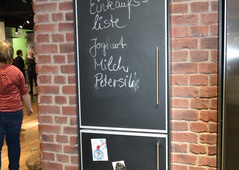 Einkaufs-
liste
Joghurt
Milch
Petersilie